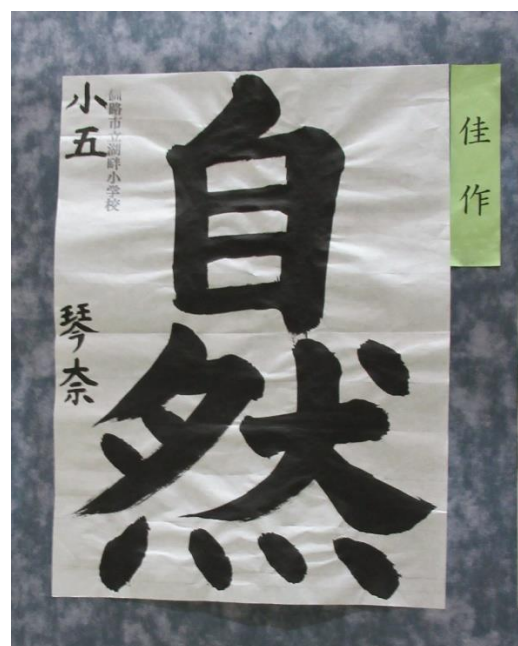 佳作
自然
釧路市立湖畔小学校
小五
琴奈